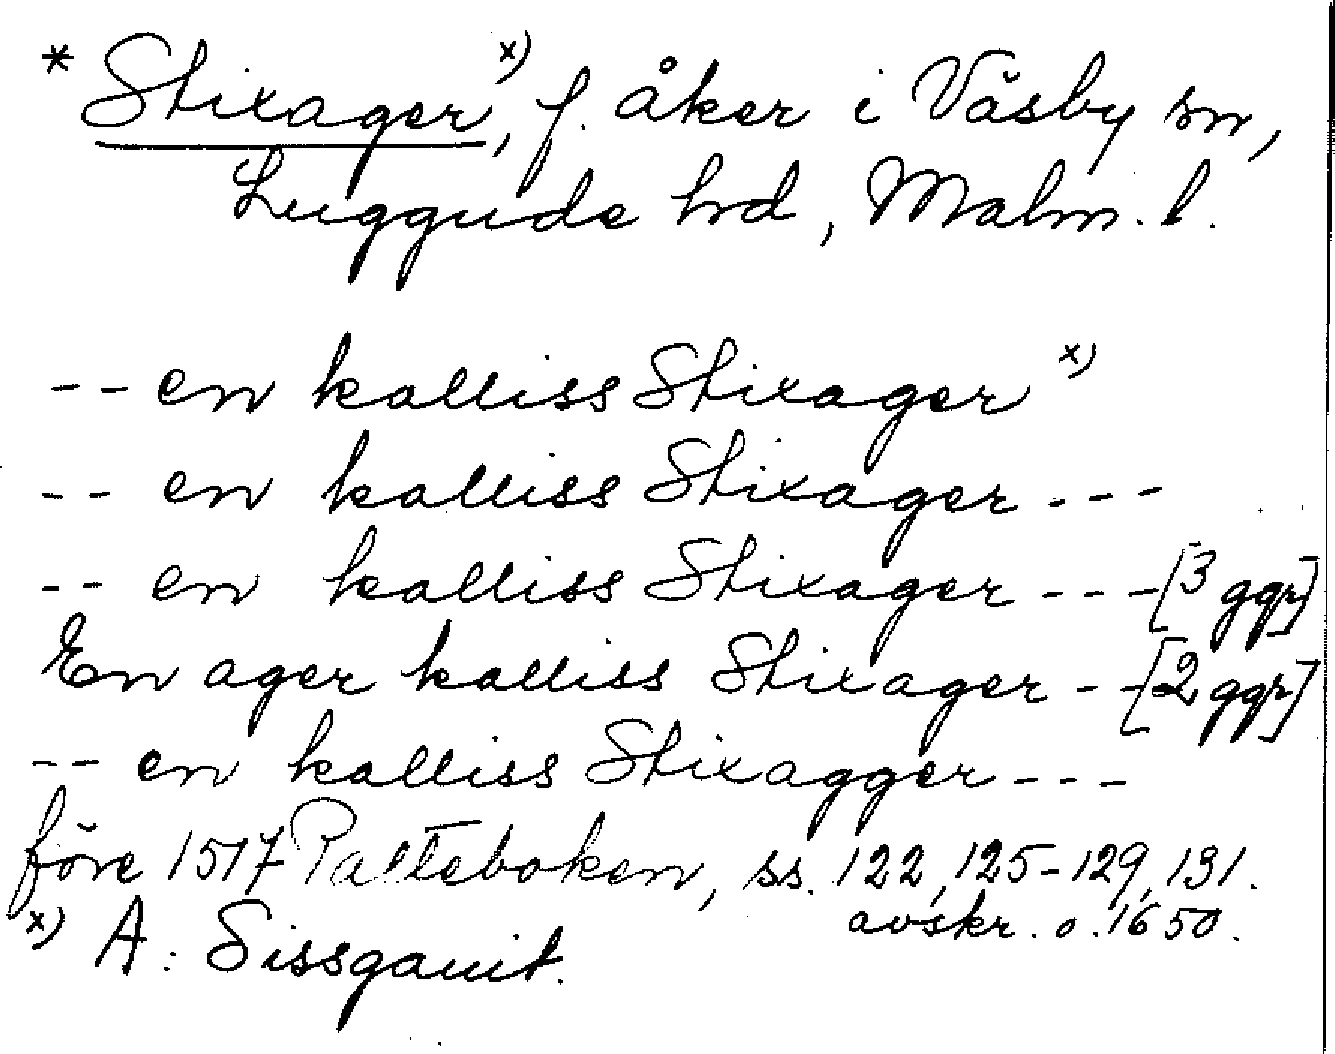 * Stixager x), f. åker i Väsby sn,
Luggude hd, Malm. l.
-- en kalliss Stixager x)
-- en kalliss Stixager ---
-- en kalliss Stixager --- [3 ggr]
En ager kalliss Stixager -- [2 ggr]
-- en kalliss Stixagger ---
före 1517 Palteboken, ss. 122, 125-129, 131.
avskr. o. 1650.
x) A: Sissgauit.